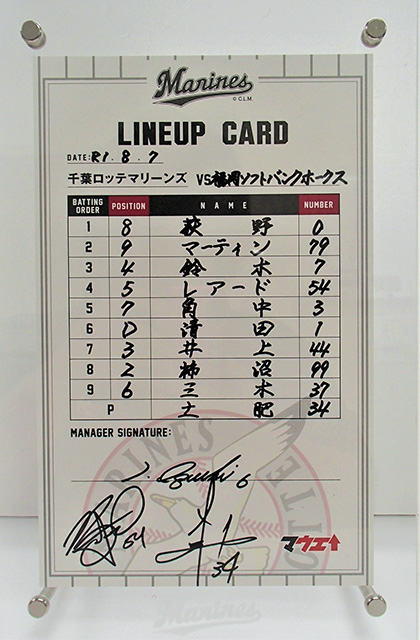 Marines
© C.L.M.
LINEUP CARD
DATE: R1.8.7
千葉ロッテマリーンズ VS 福岡ソフトバンクホークス
BATTING ORDER POSITION NAME NUMBER
1 8 荻野 0
2 9 マーティン 79
3 4 鈴木 7
4 5 レアード 54
5 7 角中 3
6 D 清田 1
7 3 井上 44
8 2 柿沼 99
9 6 三木 37
P 土肥 34
MANAGER SIGNATURE:
6
54
34
マウエ↑
MARINES
Marines